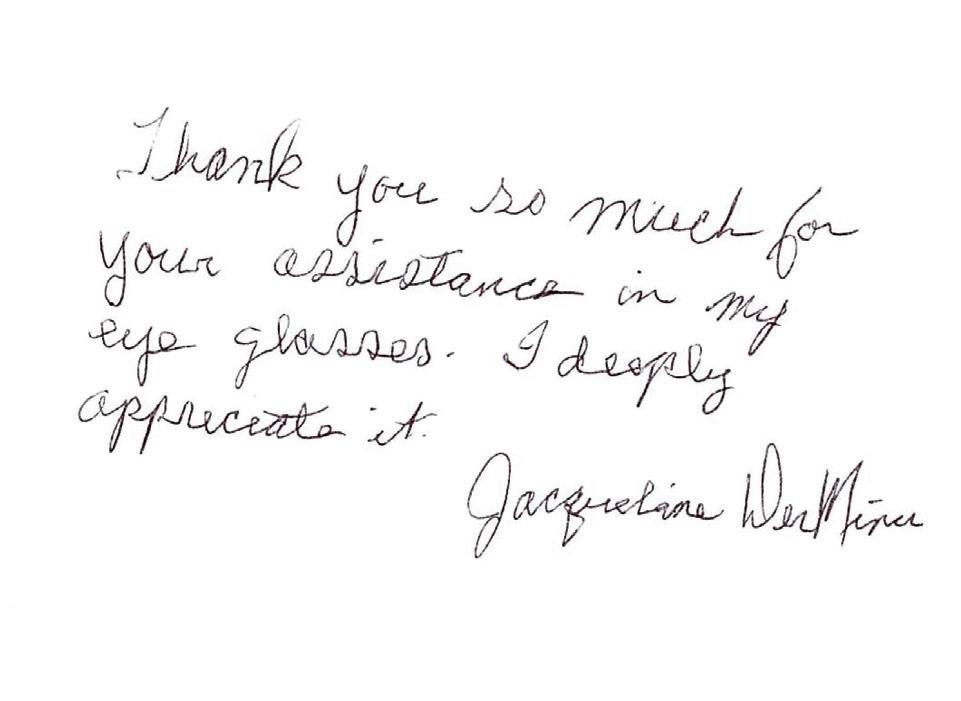 Thank you so much for
your assistance in my
eye glasses. I deeply
appreciate it.
Jacqueline